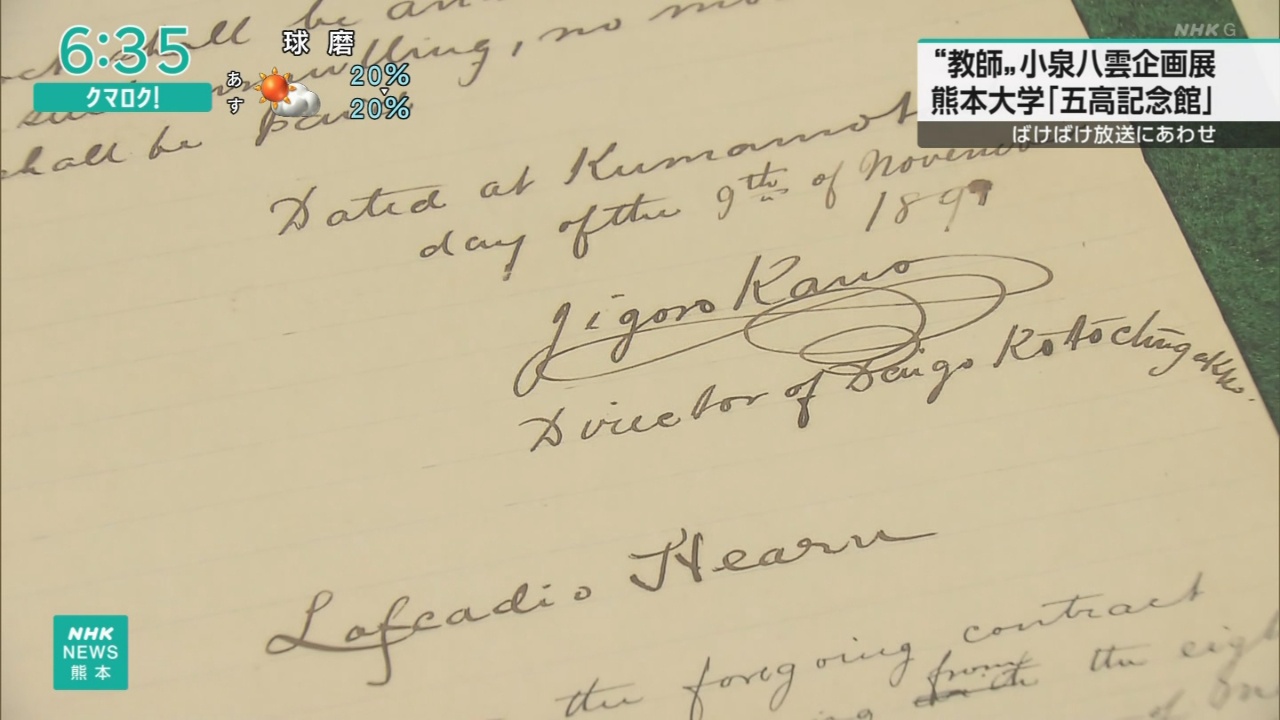 6:35
クマロク!
あす
球磨
20%
20%
NHK G
“教師„小泉八雲企画展
熊本大学「五高記念館」
ばけばけ放送にあわせ
shall be
no
shall be
Dated at Kumamot
day of the 9th of Novemb
189
Jigoro Kano
Director of Daigo Kotochugakko.
Lafcadio Hearn
the foregoing contract
from the eig
NHK
NEWS
熊本